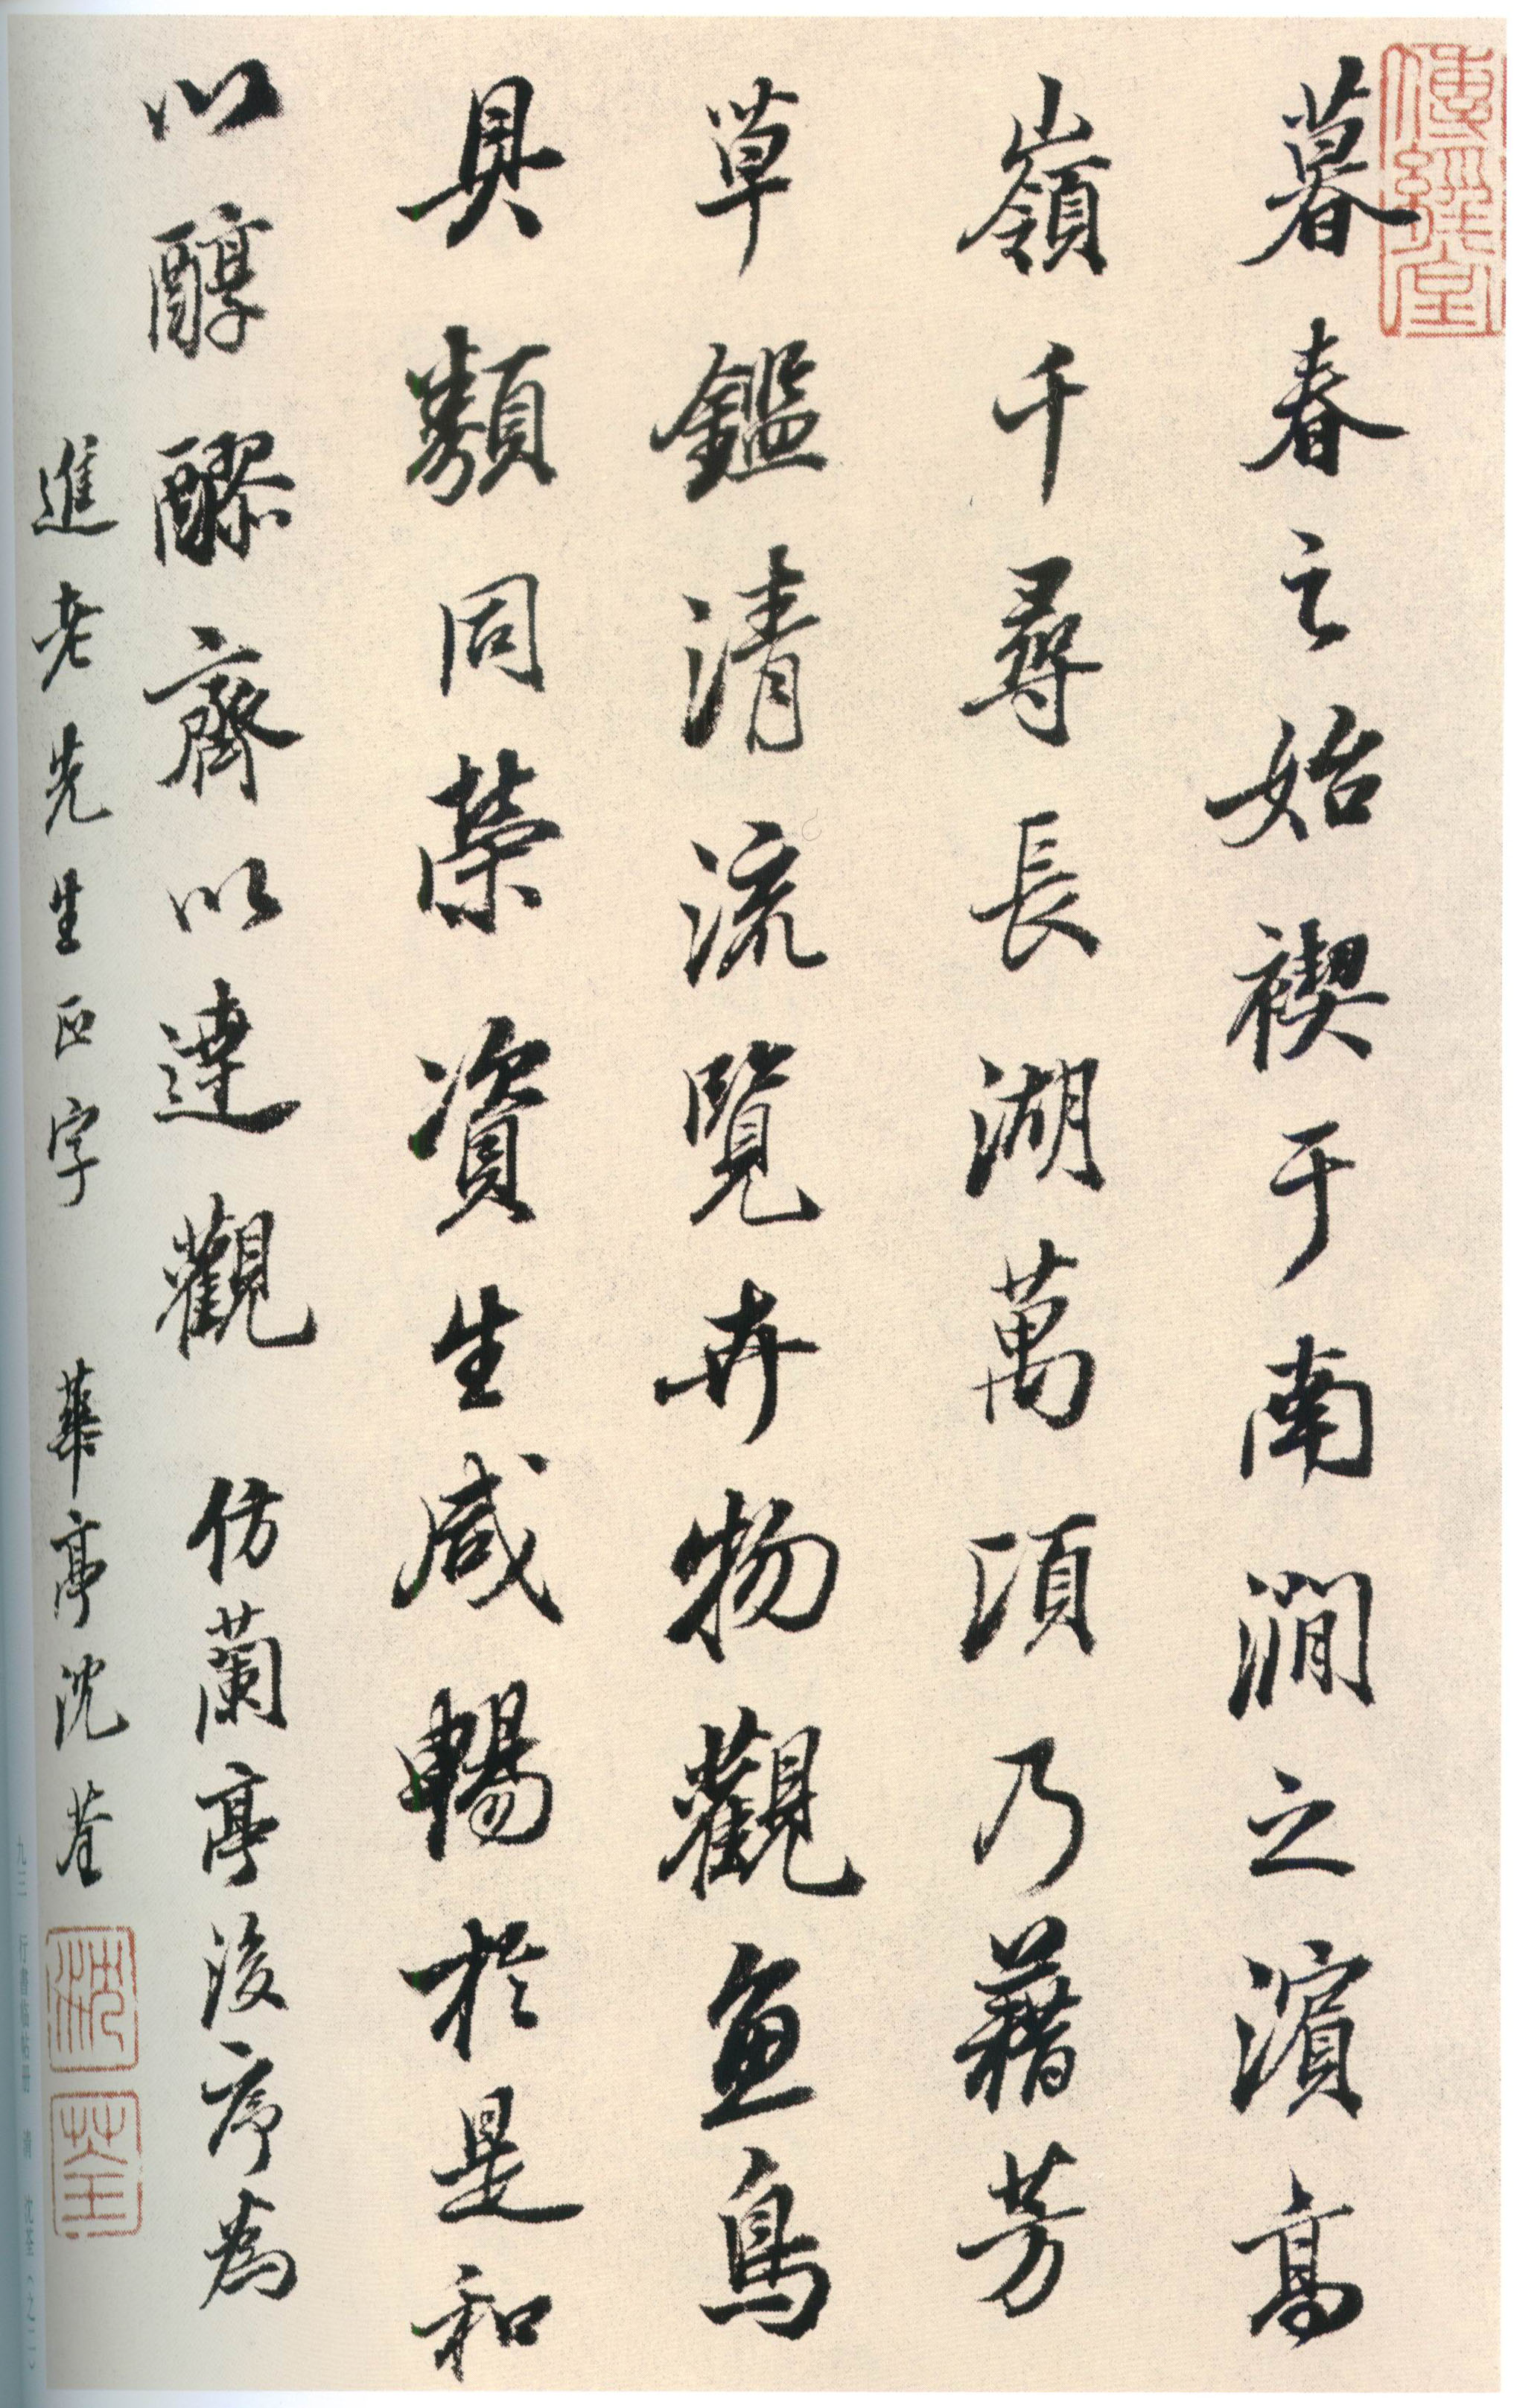 暮春之始禊于南澗之濱高
嶺千尋長湖萬頃乃藉芳
草鑑清流覽卉物觀魚鳥
具類同榮資生咸暢於是和
以醇醪齊以達觀 仿蘭亭後序為
進老先生正字 華亭沈荃
傳經堂
沈
荃